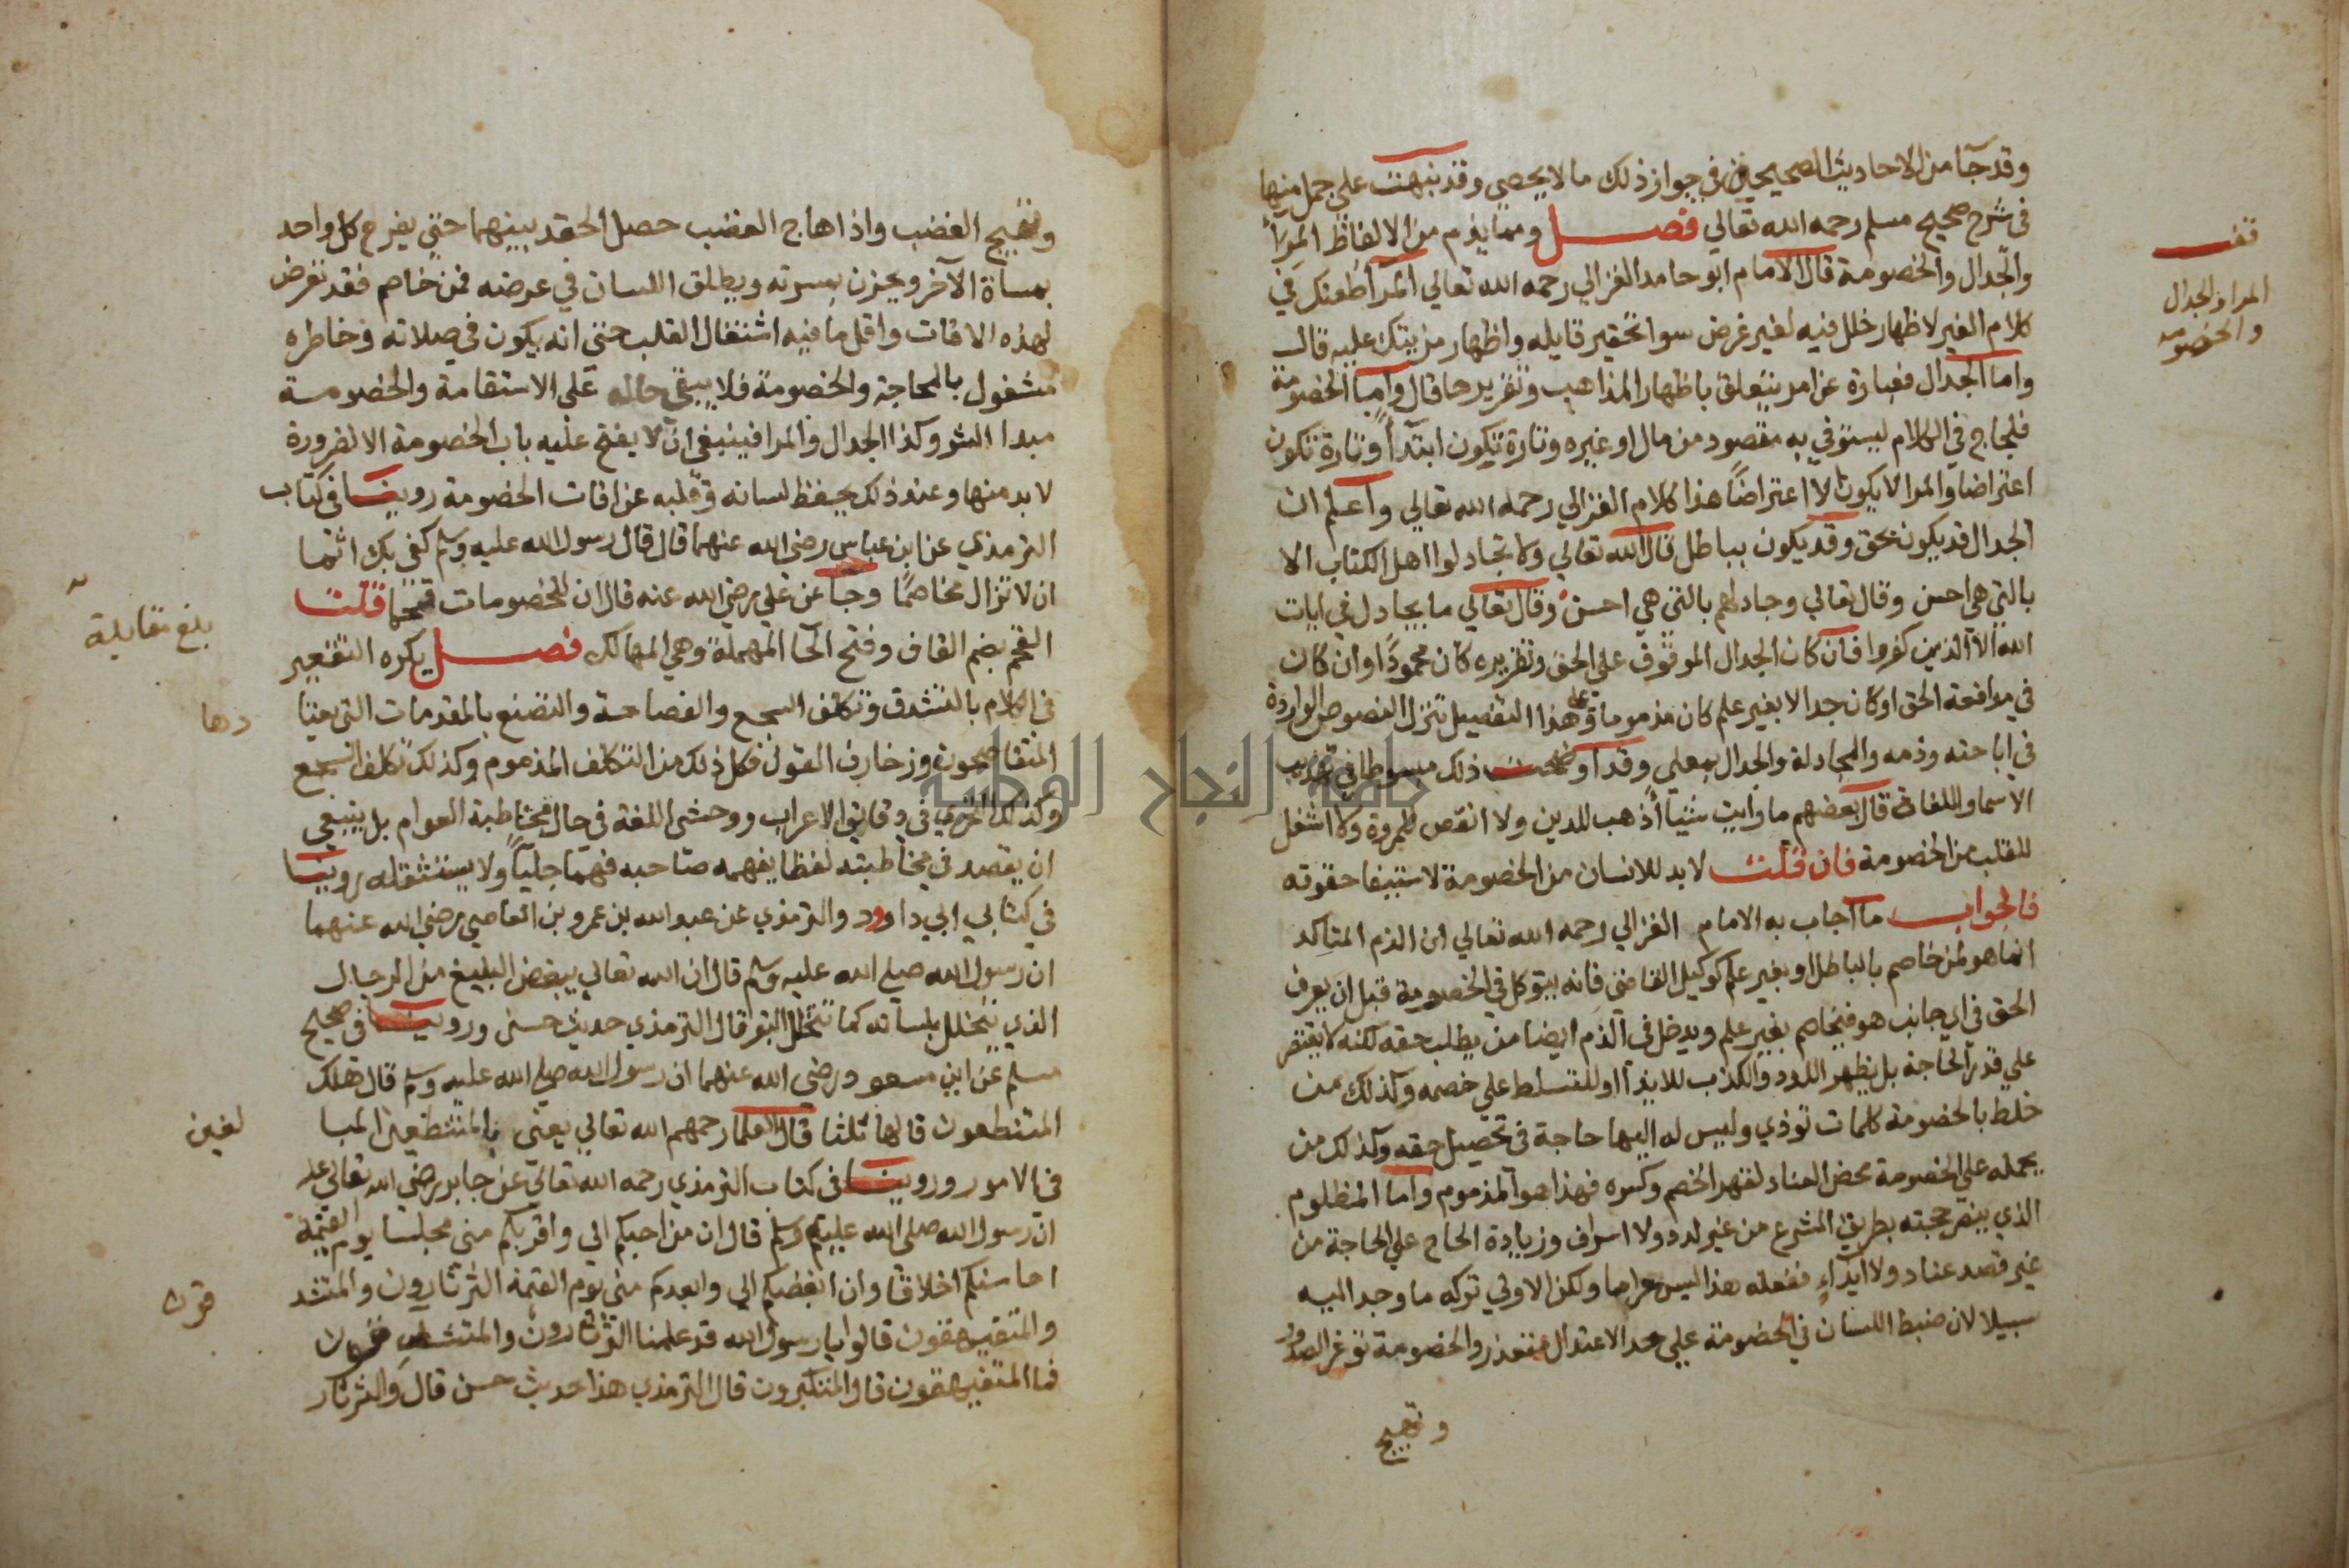 وقد جآ من الاحاديث الصحيحة في جواز ذلك ما لا يحصي وقد نبهت على جمل منها
في شرح صحيح مسلم رحمه الله تعالي فصل ومما يذم من الالفاظ المرآ
والجدال والخصومة قال الامام ابو حامد الغزالي رحمه الله تعالي المرآ طعنك في
كلام الغير لاظهار خلل فيه لغير غرض سوا تحقير قايله واظهار مزيتك عليه قال
واما الجدال فعبارة عن امر يتعلق باظهار المذاهب وتقريرها قال واما الخصومة
فلجاج في الكلام ليستوفي به مقصود من مال او غيره وتارة تكون ابتدآ وتارة تكون
اعتراضا والمرا لا يكون الا اعتراضاً هذا كلام الغزالي رحمه الله تعالي واعلم ان
الجدال قد يكون بحق وقد يكون بباطل قال الله تعالي ولا تجادلوا اهل الكتاب الا
بالتي هي احسن وقال تعالي وجادلهم بالتي هي احسن وقال تعالي ما يجادل في ايات
الله الا الذين كفروا فان كان الجدال الموقوف على الحق وتقريره كان محمودًا وان كان
في مدافعة الحق او كان جدالا بغير علم كان مذموما وعلى هذا التفصيل تنزل النصوص الواردة
في اباحته وذمه والمجادلة والجدال بمعني وقد اوضحت ذلك مبسوطا في تهذيب
الاسما واللغات قال بعضهم ما رايت شيئا أذهب للدين ولا انقص للمروة ولا اشغل
للقلب من الخصومة فان قلت لا بد للانسان من الخصومة لاستيفا حقوقه
فالجواب ما اجاب به الامام الغزالي رحمه الله تعالي ان الذم المتاكد
انما هو لمن خاصم بالباطل او بغير علم كوكيل القاضي فانه يتوكل في الخصومة قبل ان يعرف
الحق في اي جانب هو فيخاصم بغير علم ويدخل في الذم ايضا من يطلب حقه لكنه لا يقتصر
علي قدر الحاجة بل يظهر اللدد والكذب للايذآ او للتسلط علي خصمه وكذلك من
خلط بالخصومة كلمات توذي وليس له اليها حاجة في تحصيل حقه وكذلك من
يحمله علي الخصومة محض العناد لقهر الخصم وكسره فهذا هو المذموم واما المظلوم
الذي ينصر حجته بطريق الشرع من غير لدد ولا اسراف وزيادة الحاح علي الحاجة من
غير قصد عناد ولا ايذآءٍ ففعله هذا ليس حراما ولكن الاولي تركه ما وجد اليه
سبيلا لان ضبط اللسان في الخصومة علي حد الاعتدال متعذر والخصومة توغر الصدور
وتهيج
قف
المرا والجدال
والخصومه
وتهيج الغضب واذا هاج الغضب حصل الحقد بينهما حتي يفرح كل واحد
بمساة الآخر ويحزن بمسرته ويطلق اللسان في عرضه فمن خاصم فقد تعرض
لهذه الافات واقل ما فيه اشتغال القلب حتي انه يكون في صلاته وخاطره
مشغول بالمحاجة والخصومة فلا يبقى حاله على الاستقامة والخصومة
مبدا الشر وكذا الجدال والمرا فينبغي ان لا يفتح عليه باب الخصومة الا لضرورة
لا بد منها وعند ذلك يحفظ لسانه وقلبه عن افات الخصومة روينا في كتاب
الترمذي عن ابن عباس رضي الله عنهما قال قال رسول الله عليه وسلم كفى بك اثما
ان لا تزال مخاصمًا وجا عن علي رضي الله عنه قال ان للخصومات قحما قلت
القحم بضم القاف وفتح الحآ المهملة وهي المهالك فصل يكره التقعير
في الكلام بالتشدق وتكلف السجع والفصاحة والتصنع بالمقدمات التي يعتا
دها
المتفاصحون وزخارف القول فكل ذلك من التكلف المذموم وكذلك تكلف السجع
وكذلك التحري في دقايق الاعراب ووحشي اللغة في حال مخاطبة العوام بل ينبغي
ان يقصد في مخاطبته لفظا يفهمه صاحبه فهما جلياً ولا يستثقله روينا
في كتابي ابي داوود والترمذي عن عبد الله بن عمرو بن العاصي رضي الله عنهما
ان رسول الله صلي الله عليه وسلم قال ان الله تعالي يبغض البليغ من الرجال
الذي يتخلل بلسانه كما تتخلل البقر قال الترمذي حديث حسن وروينا في صحيح
مسلم عن ابن مسعود رضي الله عنهما ان رسول الله صلي الله عليه وسلم قال هلك
المتنطعون قالها ثلثا قال العلما رحمهم الله تعالي يعني بالمتنطعين المبا
لغين
في الامور وروينا في كتاب الترمذي رحمه الله تعالي عن جابر رضي الله تعالى عنه
ان رسول الله صلى الله عليه وسلم قال ان من احبكم الي واقربكم مني مجلسا يوم القيمة
احاسنكم اخلاقا وان ابغضكم الي وابعدكم مني يوم القيمة الثرثارون والمتشد
قون
والمتفيهقون قالوا يا رسول الله قد علمنا الثرثارون والمتشدقون
فما المتفيهقون قال المتكبرون قال الترمذي هذا حديث حسن قال والثرثار
بلغ مقابلة
جامعة النجاح الوطنية